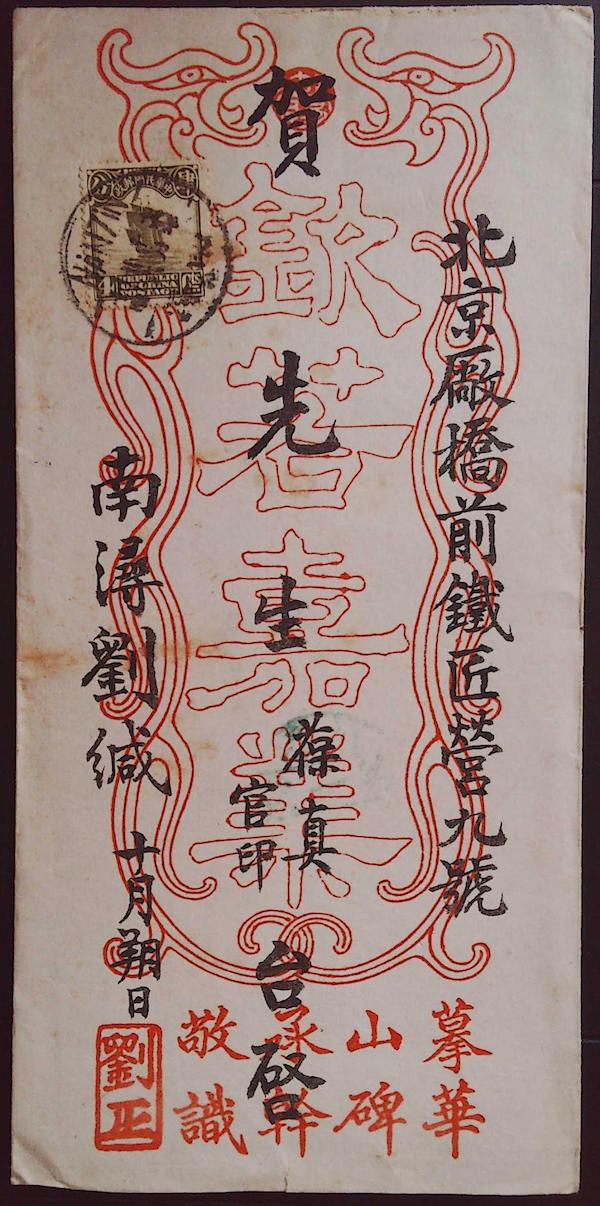 北京廠橋前鐵匠營九號
賀先生台啓
葆真
官印
南潯劉緘
十月朔日
欽若嘉業
摹華
山碑
承幹
敬識
劉
半分
中華民國郵政
REPUBLIC
OF CHINA
POSTAGE